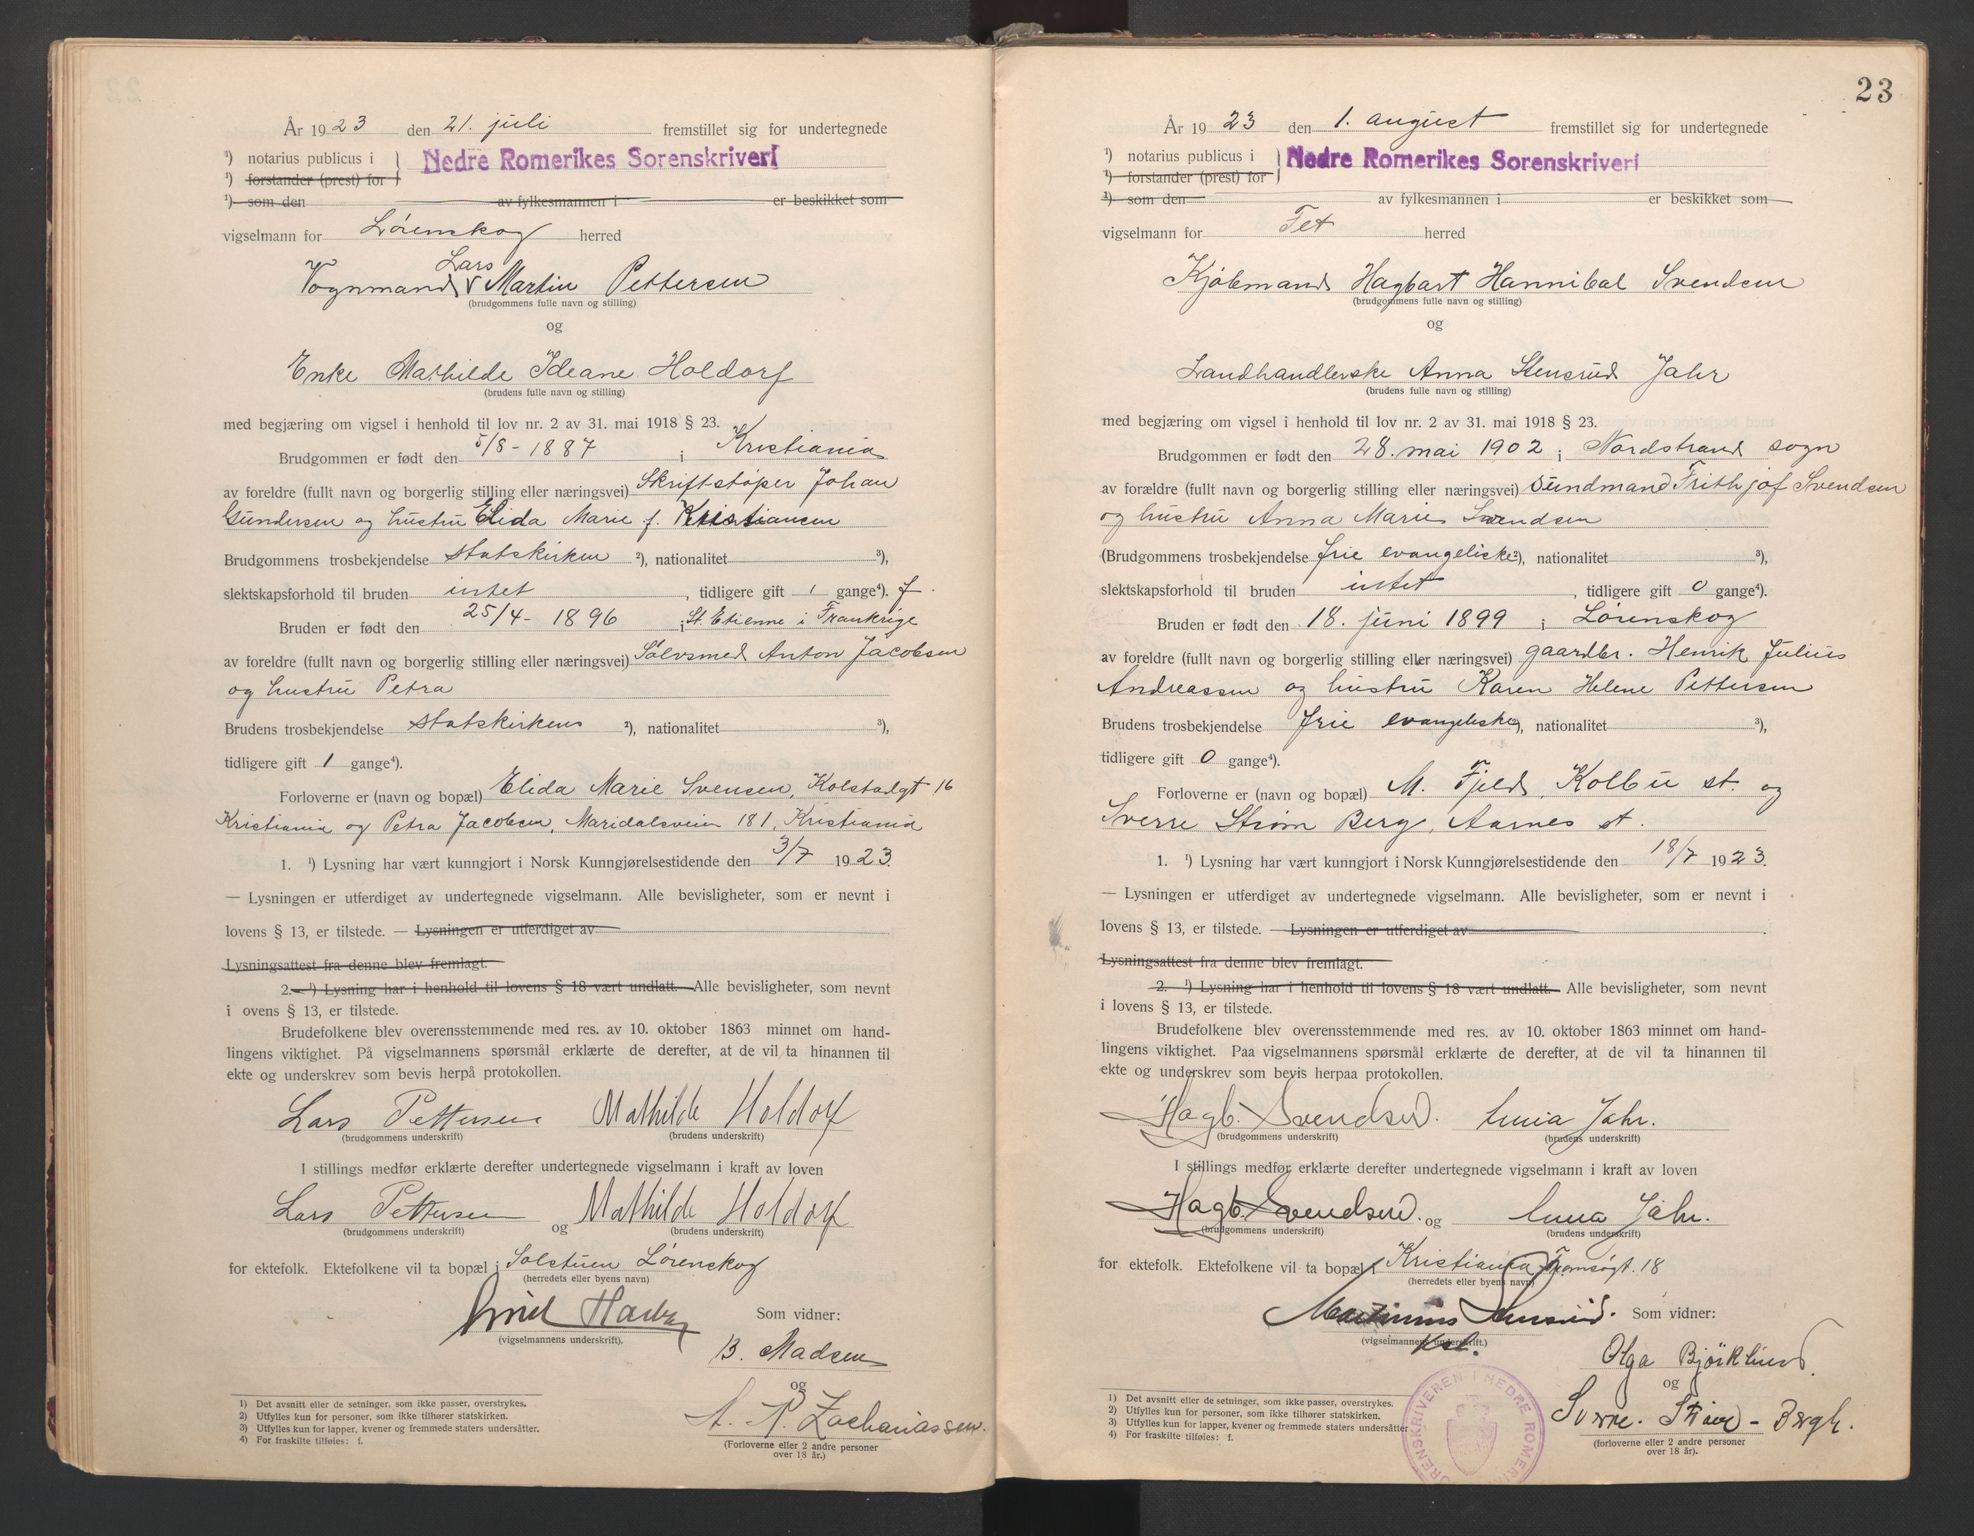 År 1923 den 21. juli fremstillet sig for undertegnede
¹) notarius publicus i } Nedre Romerikes Sorenskriveri
¹) forstander (prest) for
¹) som den av fylkesmannen i er beskikket som
vigselmann for Lørenskog herred
Lars
Vognmand v Martin Pettersen
(brudgommens fulle navn og stilling)
og
Enke Mathilde Ideane Holdorf
(brudens fulle navn og stilling)
med begjæring om vigsel i henhold til lov nr. 2 av 31. mai 1918 § 23.
Brudgommen er født den 5/8 - 1887 i Kristiania
av foreldre (fullt navn og borgerlig stilling eller næringsvei) Skriftstøper Johan
Gundersen og hustru Elida Marie f. Kristiansen
Brudgommens trosbekjendelse statskirken ²), nationalitet ³),
slektskapsforhold til bruden intet, tidligere gift 1 gange⁴). f.
Bruden er født den 25/4 - 1896 i St. Etienne i Frankrige
av foreldre (fullt navn og borgerlig stilling eller næringsvei) Sølvsmed Anton Jacobsen
og hustru Petra
Brudens trosbekjendelse statskirkens ²), nationalitet ³),
tidligere gift 1 gange⁴).
Forloverne er (navn og bopæl) Elida Marie Svensen, Kolstadgt 16
Kristiania og Petra Jacobsen, Maridalsveien 181, Kristiania
1. ¹) Lysning har vært kunngjort i Norsk Kunngjørelsestidende den 3/7 1923.
— Lysningen er utferdiget av undertegnede vigselmann. Alle bevisligheter, som er nevnt i
lovens § 13, er tilstede. — Lysningen er utferdiget av
Lysningsattest fra denne blev fremlagt.
2. — ¹) Lysning har i henhold til lovens § 18 vært undlatt. Alle bevisligheter, som nevnt
i ovens § 13, er tilstede.
Brudefolkene blev overensstemmende med res. av 10. oktober 1863 minnet om hand-
lingens viktighet. På vigselmannens spørsmål erklærte de derefter, at de vil ta hinannen til
ekte og underskrev som bevis herpå protokollen.
Lars Pettersen Mathilde Holdorf
(brudgommens underskrift) (brudens underskrift)
I stillings medfør erklærte derefter undertegnede vigselmann i kraft av loven
Lars Pettersen og Mathilde Holdorf
(brudgommens underskrift) (brudens underskrift)
for ektefolk. Ektefolkene vil ta bopæl i Solstuen Lørenskog
(herredets eller byens navn)
Som vidner:
(vigselmannens underskrift).
B. Madsen
og
A. P. Zachariassen.
(Forloverne eller 2 andre personer
over 18 år.)
1) Det avsnitt eller de setninger, som ikke passer, overstrykes.
2) Utfylles kun for personer, som ikke tilhører statskirken.
3) Utfylles kun for lapper, kvener og fremmede staters undersåtter.
4) For fraskilte tilføies: f.
23
År 1923 den 1. august fremstillet sig for undertegnede
¹) notarius publicus i } Nedre Romerikes Sorenskriveri
¹) forstander (prest) for
¹) som den av fylkesmannen i er beskikket som
vigselmann for Fet herred
Kjøbmand Hagbart Hannibal Svendsen
(brudgommens fulle navn og stilling)
og
Landhandlerske Anna Stensrud Jahr
(brudens fulle navn og stilling)
med begjæring om vigsel i henhold til lov nr. 2 av 31. mai 1918 § 23.
Brudgommen er født den 28. mai 1902 i Nordstrand sogn
av forældre (fullt navn og borgerlig stilling eller næringsvei) Sundmand Frithjof Svendsen
og hustru Anna Marie Svendsen
(Brudgommens trosbekjendelse frie evangeliske ²), nationalitet ³),
slektskapsforhold til bruden intet, tidligere gift 0 gange⁴).
Bruden er født den 18. juni 1899 i Lørenskog
av foreldre (fullt navn og borgerlig stilling eller næringsvei) gaardbr. Henrik Julius
Andreassen og hustru Karen Helene Pettersen
Brudens trosbekjendelse frie evangeliske ²), nationalitet ³),
tidligere gift 0 gange⁴).
Forloverne er (navn og bopæl) M. Fjeld, Kolbu st. og
Sverre Strøm Berg, Aarnes st.
1. ¹) Lysning har vært kunngjort i Norsk Kunngjørelsestidende den 18/7 1923.
— Lysningen er utferdiget av undertegnede vigselmann. Alle bevisligheter, som er nevnt i
lovens § 13, er tilstede. — Lysningen er utferdiget av
Lysningsattest fra denne blev fremlagt.
2. ¹) Lysning har i henhold til lovens § 18 vært undlatt. Alle bevisligheter, som nevnt
i lovens § 13, er tilstede.
Brudefolkene blev overensstemmende med res. av 10. oktober 1863 minnet om hand-
lingens viktighet. Paa vigselmannens spørsmål erklærte de derefter, at de vil ta hinannen til
ekte og underskrev som bevis herpaa protokollen.
Hagb. Svendsen. Anna Jahr.
(brudgommens underskrift) (brudens underskrift)
I stillings medfør erklærte derefter undertegnede vigselmann i kraft av loven
Hagb. Svendsen. og Anna Jahr.
(brudgommens underskrift) (brudens underskrift)
for ektefolk. Ektefolkene vil ta bopæl i Kristiania Tromsøgt. 18
(herredets eller byens navn)
Martinius Som vidner:
(vigselmannens underskrift.)
Kst.
Olga Bjørklund
og
Sverre. Strøm - Bergh.
(forloverne eller 2 andre personer
over 18 år).
1) Det avsnitt eller de setninger, som ikke passer, overstrykes.
2) Utfylles kun for personer, som ikke tilhører statskirken.
3) Utfylles kun for lapper, kvener og fremmede staters undersåtter
4) For fraskilte tilføies: f.
SORENSKRIVEREN I NEDRE ROMERIK